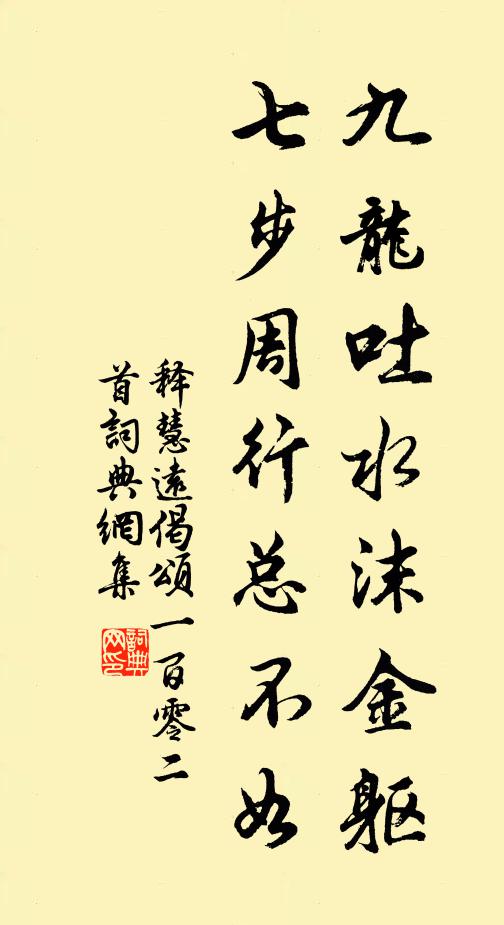 九龍吐水沫金軀
七步周行总不如
释慧遠偈頌一百零二
首詞典網集
詞典
网印